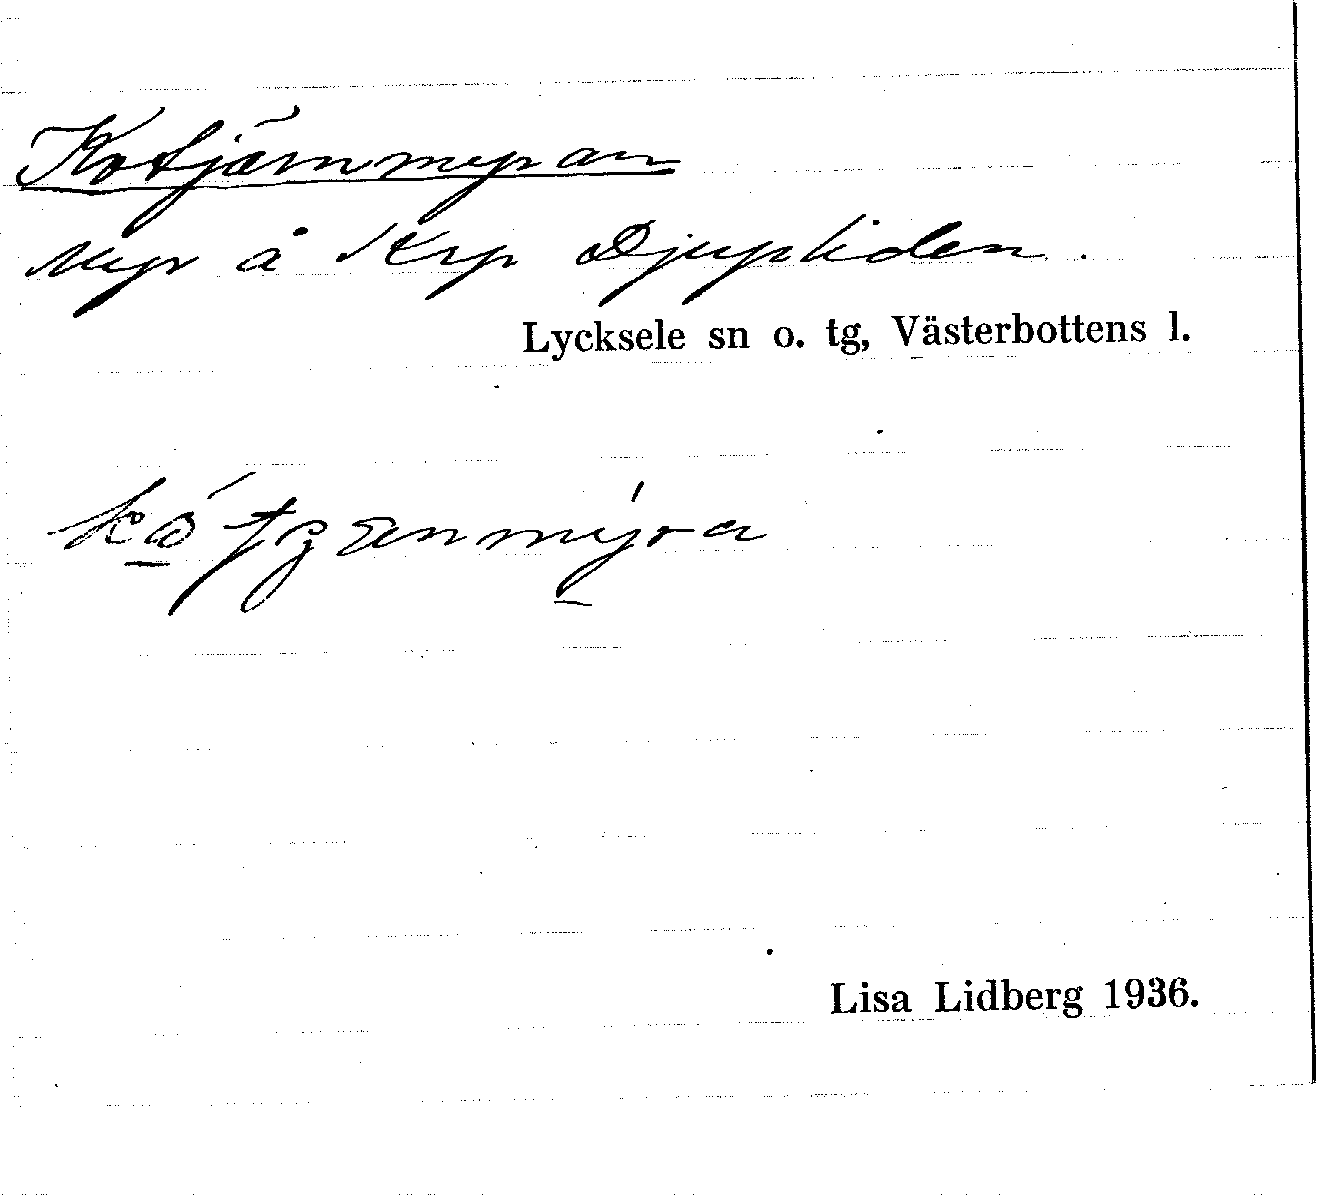 Kotjärnmyran
Myr å Krp Djupliden.
Lycksele sn o. tg, Västerbottens l.
Lisa Lidberg 1936.